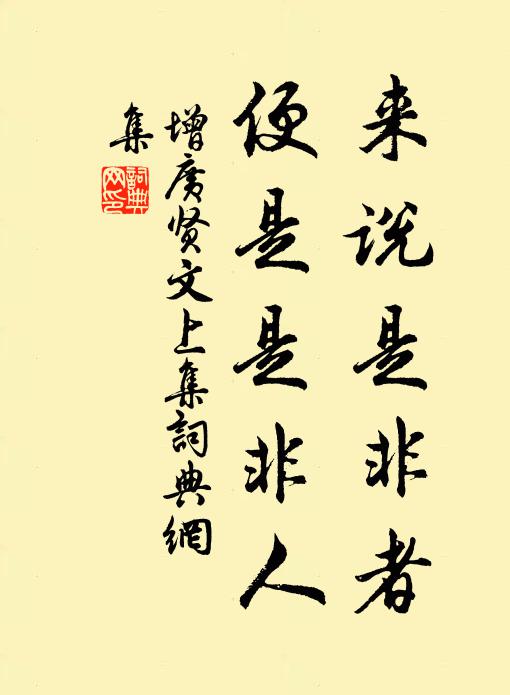 来说是非者
便是是非人
增广贤文上集詞典網
集
詞典
网印